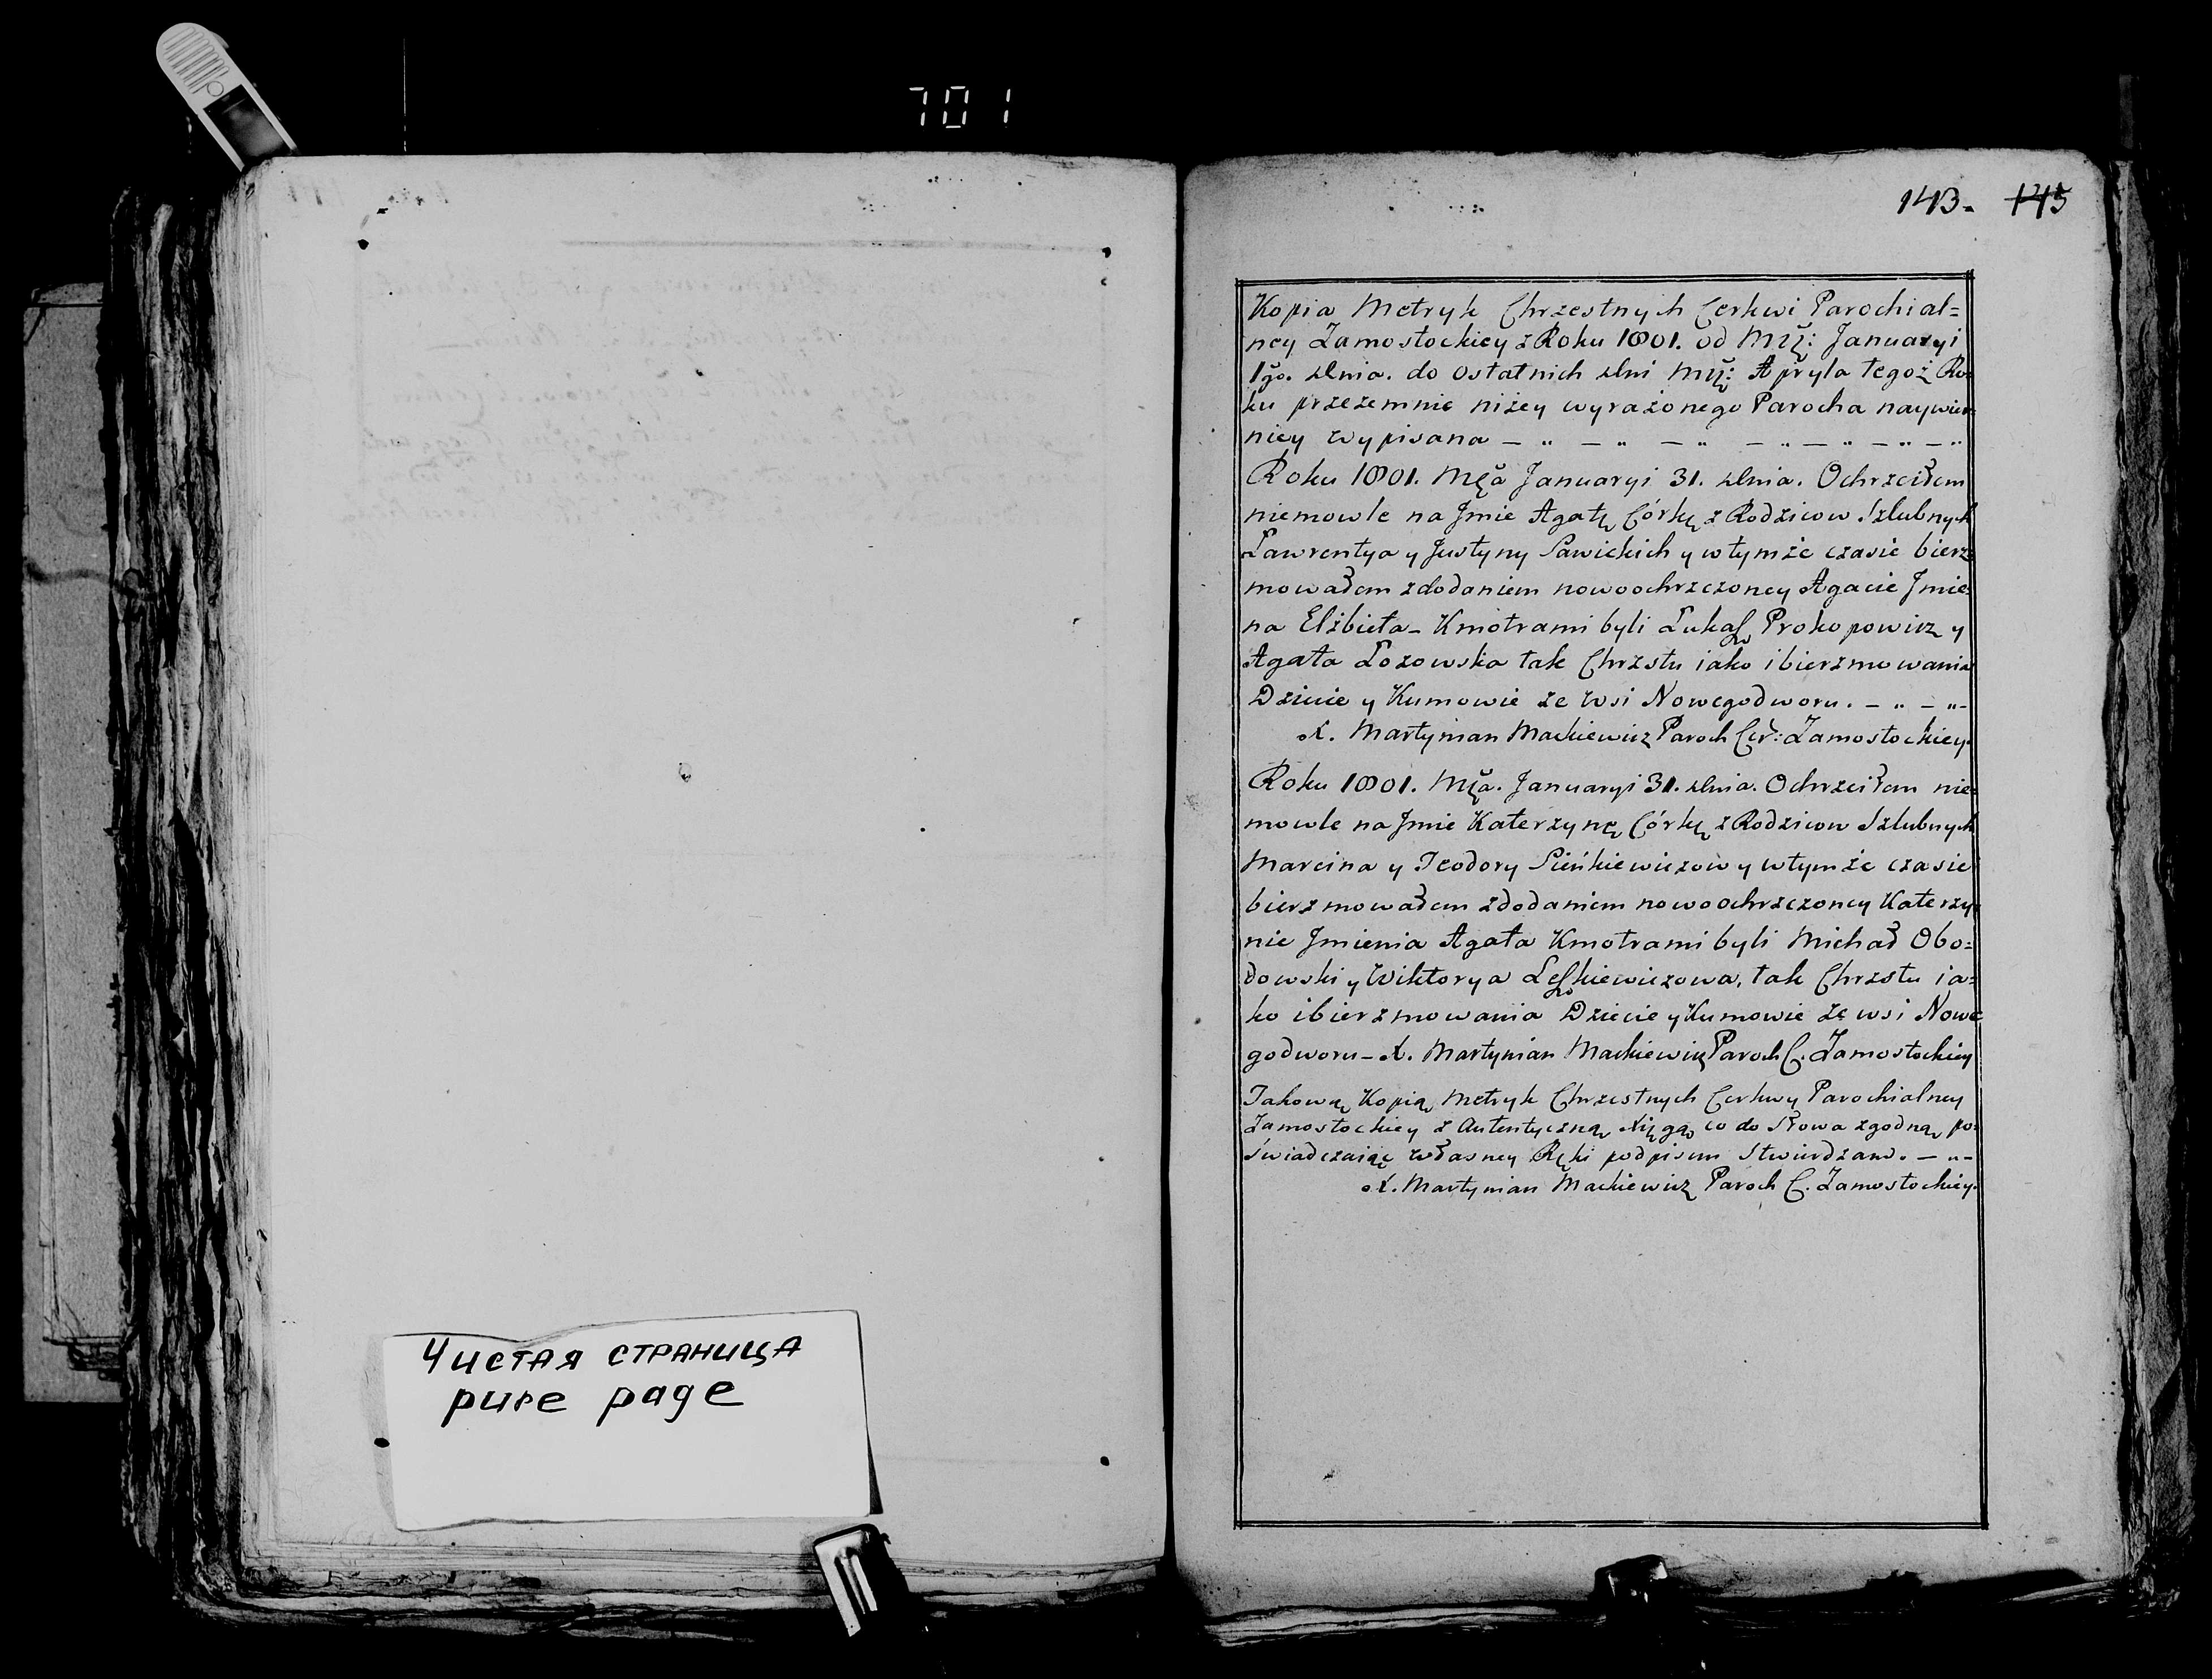 701
143. 145
Kopia Metryk Chrzestnych Cerkwi Parochial=
ney Zamostockiey z Roku 1801. od Mца: Januaryi
1go. dnia. do ostatnich dni Mца: Apryla tegoż Ro=
ku przezemnie niżey wyrażonego Parocha naywier=
niey wypisana — „ — „ — „ — „ — „ — „ — „
Roku 1801. Mca Januaryi 31. dnia. Ochrzciłem
niemowle na Jmie Agatę Córkę z Rodzicow Szlubnych
Lawrentya y Justyny Sawickich y wtymże czasie bierz=
mowałem zdodaniem nowoochrzczoney Agacie Jmie=
na Elżbieta – Kmotrami byli Łukasz Prokopowicz y
Agata Łozowska tak Chrzstu iako i bierzmowania
Dziecie y Kumowie ze wsi Nowegodworu. — „ — „ –
X. Martynian Mackiewicz Paroch Cer: Zamostockiey.
Roku 1801. Mca. Januaryi 31. dnia. Ochrzciłem nie=
mowle na Jmie Katerzynę Córkę z Rodzicow Szlubnych
Marcina y Teodory Sieńkiewiczow y wtymże czasie
bierzmowałem zdodaniem nowoochrzczoney Katerzy=
nie Jmienia Agata Kmotrami byli Michał Obo=
dowski y Wiktorya Leszkiewiczowa, tak Chrzstu ia=
ko i bierzmowania Dziecie y Kumowie ze wsi Nowe
godworu – X. Martynian Mackiewicz Paroch C. Zamostockiey
Takową Kopią Metryk Chrzestnych Cerkwy Parochialney
Zamostockiey z Autentyczną Xięgą co do słowa zgodną po=
świadczaiąc własney Ręki podpisem Stwierdzam. — „ –
X. Martynian Mackiewicz Paroch C. Zamostockiey.
Чистая страница
pure page